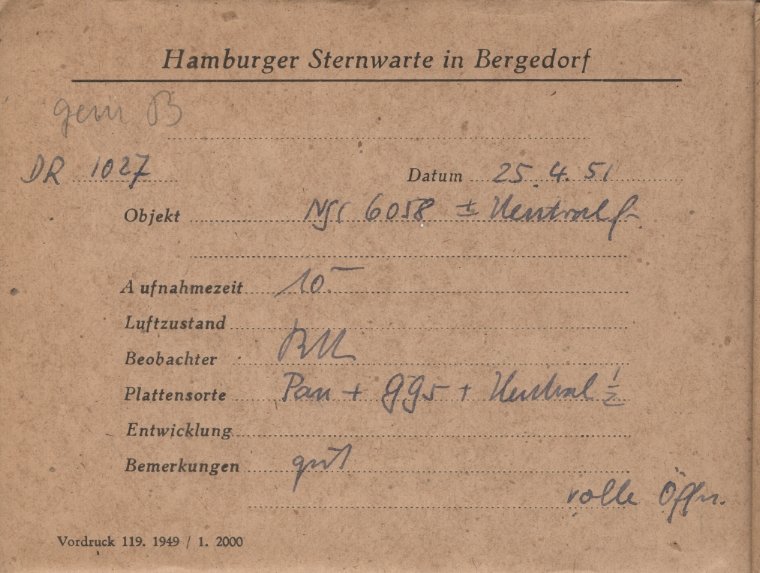 Hamburger Sternwarte in Bergedorf
gem B
DR 1027 Datum 25.4.51
Objekt NGC 6058 ± Neutralf.
Aufnahmezeit 10
Luftzustand
Beobachter
Plattensorte Pan + GG5 + Neutral 1/2
Entwicklung
Bemerkungen gut
volle Öffn.
Vordruck 119. 1949 / 1. 2000